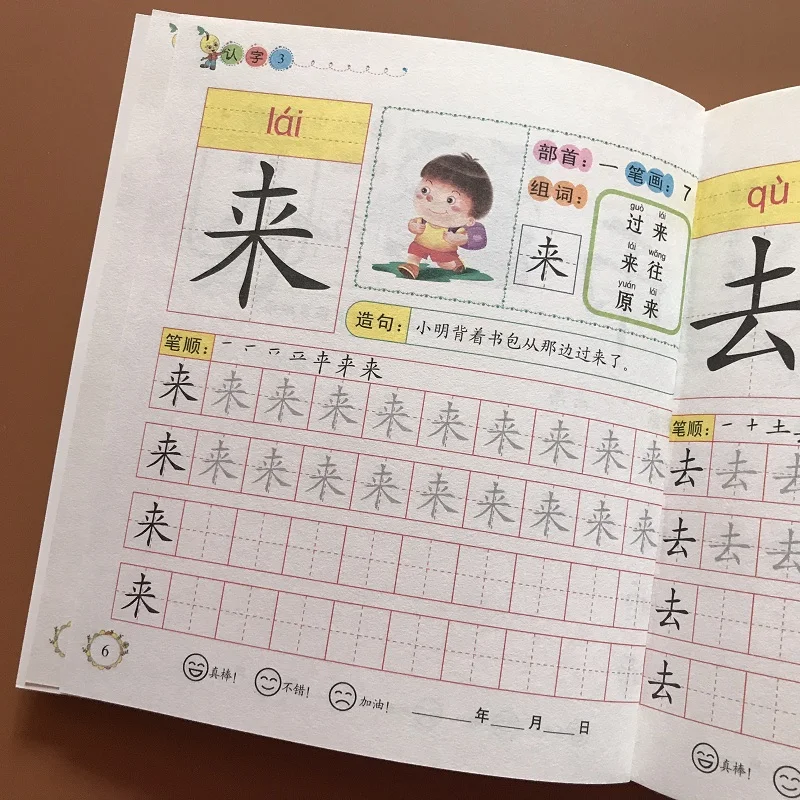 认字3
lái
来
部首：一 笔画：7
组词：
来
guò lái
过来
lái wǎng
来往
yuán lái
原来
造句：小明背着书包从那边过来了。
笔顺：
来来来来来来来来来来
来来来来来来来来来来
来
来
6
真棒！ 不错！ 加油！ 年 月 日
qù
去
笔顺：一十土
去去去
去去去
去
去
真棒！